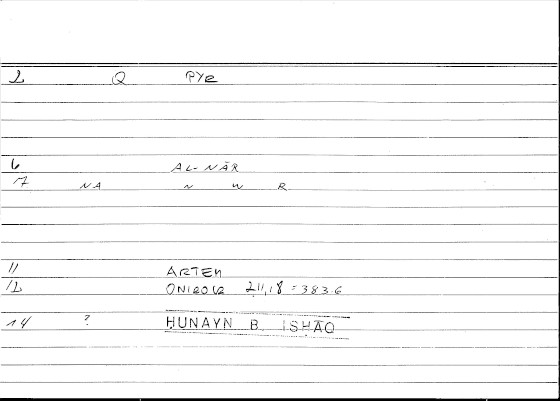 2 Q PYR
6 AL-NĀR
17 NA N W R
11 ARTEM
12 ONIROCR 211,18 = 383.6
14 ? HUNAYN B. ISHAQ